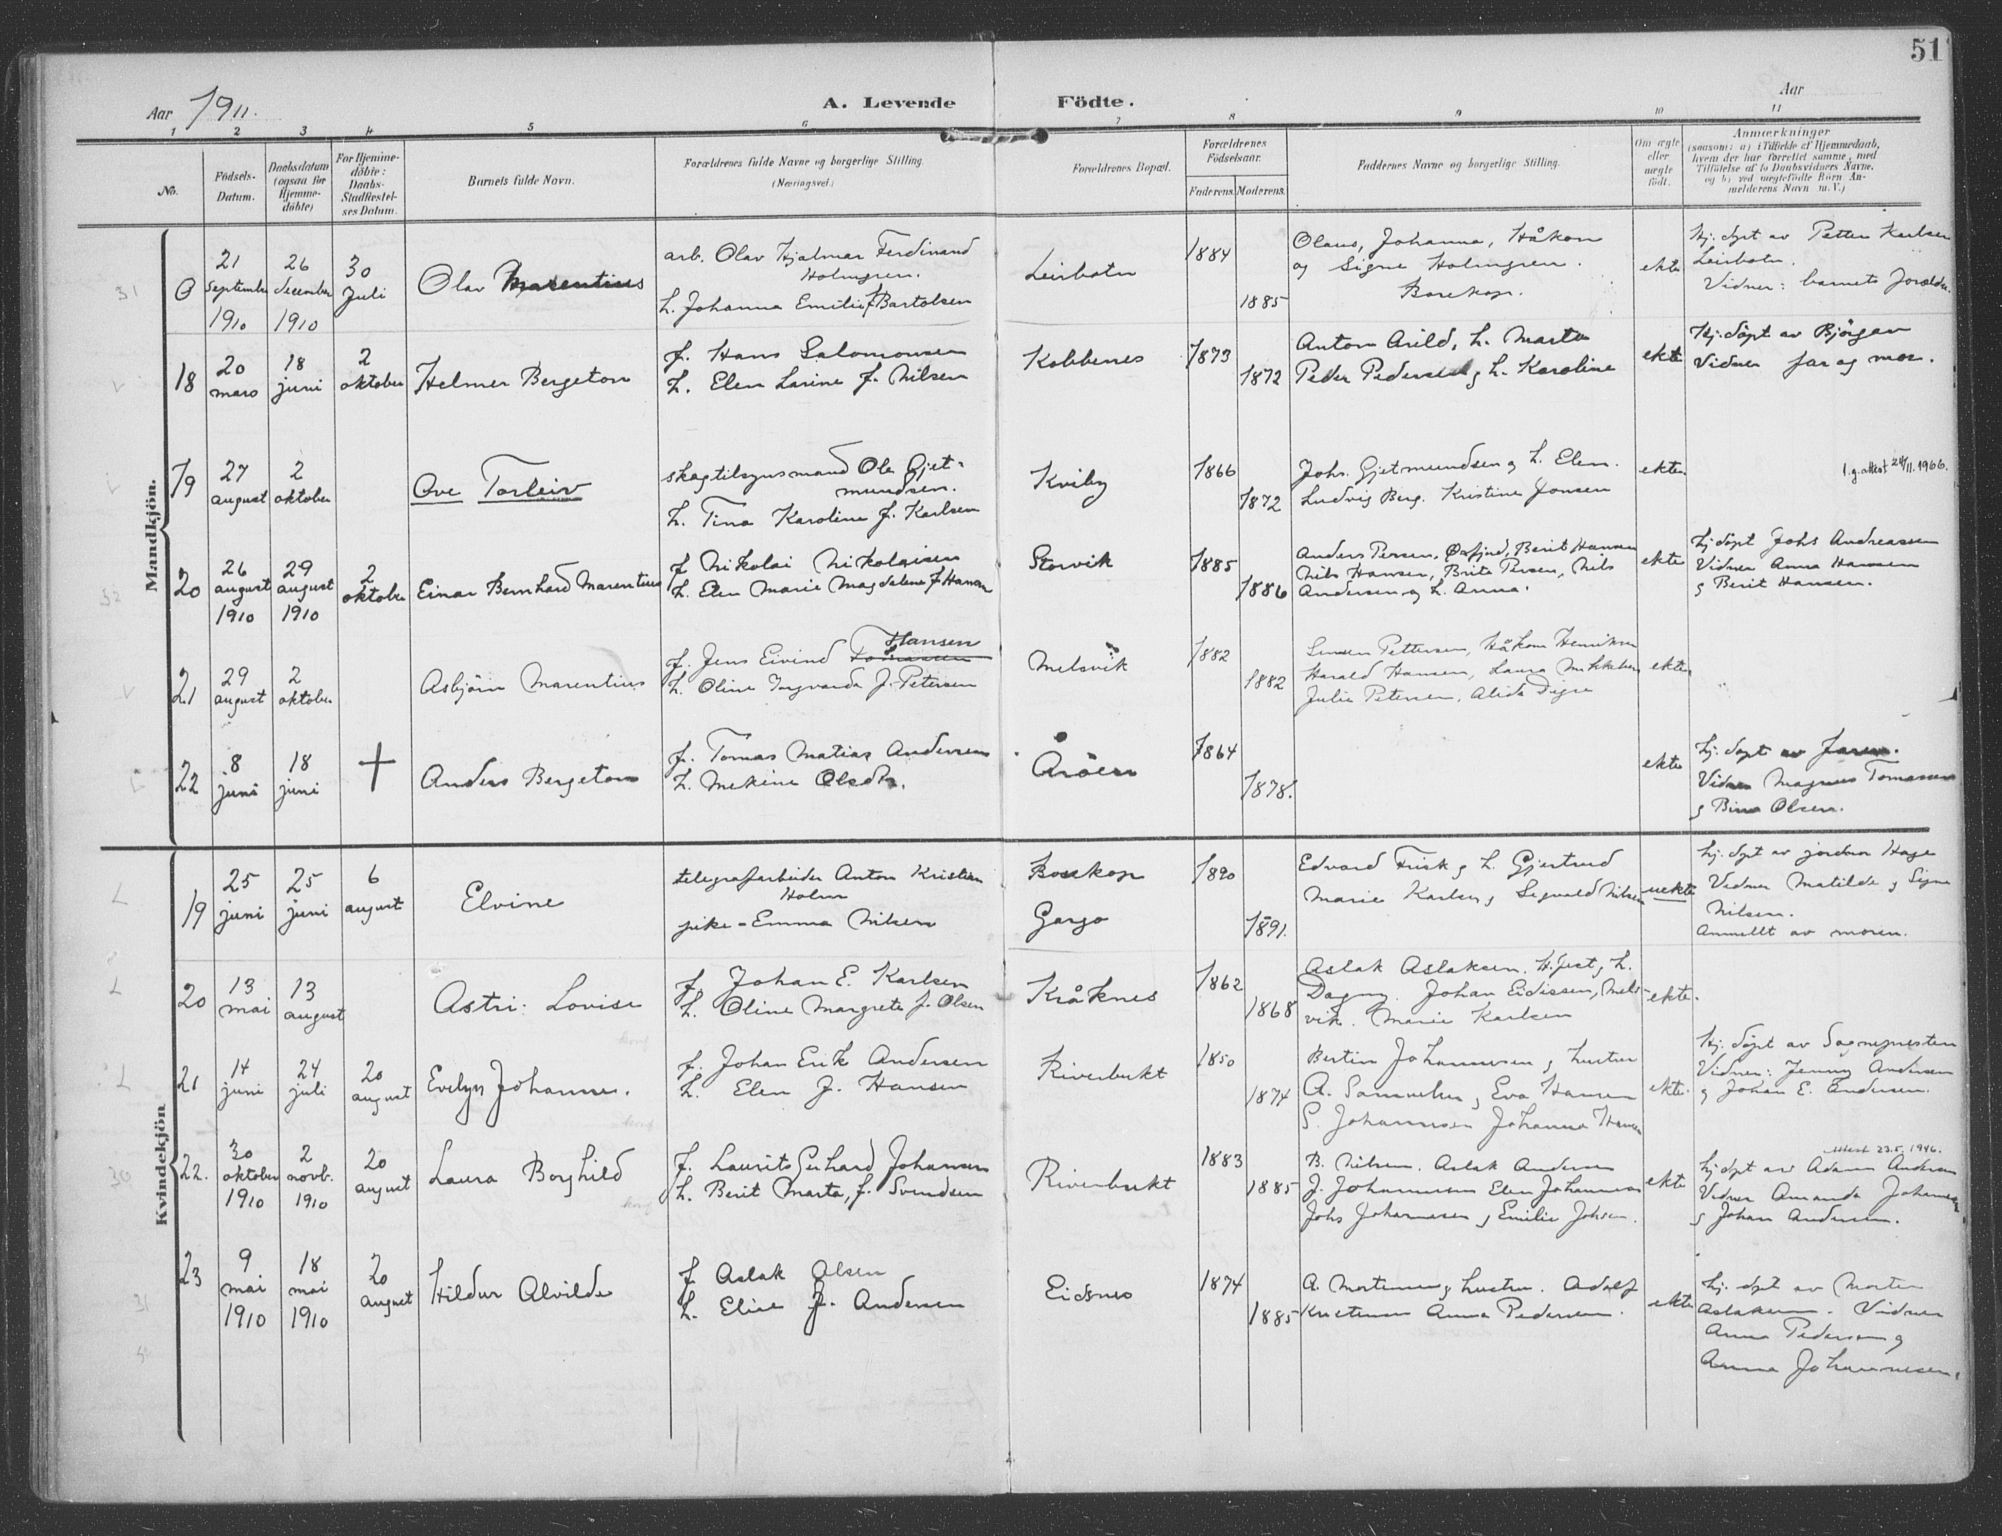 51
Aar 1911.
A. Levende Födte.
Aar
1 2 3 4 5 6 7 8 9 10 11
No.
Födsels-Datum.
Daabsdatum (ogsaa for Hjemmedöbte)
For Hjemmedöbte: Daabs-Stadfæstelses Datum.
Barnets fulde Navn.
Forældrenes fulde Navne og borgerlige Stilling.
(Næringsvei.)
Forældrenes Bopæl.
Forældrenes Födselsaar.
Faderens. Moderens.
Faddernes Navne og borgerlige Stilling.
Om ægte eller uægte födt.
Anmærkninger
(saasom: a) i Tilfælde af Hjemmedaab, hvem der har forrettet samme, med Tilföielse af to Daabsvidners Navne, og b) ved uægtefödte Börn Anmelderens Navn m. V.)
Mandkjön.
31
21 september 1910
26 december 1910
30 Juli
Olav Marentius
arb. Olav Hjalmar Ferdinand
Holmgren.
h. Johanna Emilie f Bartolsen
Leirbotn
1884
1885
Olaus, Johanna, Håkon
og Signe Holmgren.
Bosekop.
ekte
Hj. döpt av Petter Karlsen
Leirbotn.
Vidner: barnets forældre.
18
20 mars
18 juni
2 oktober
Helmer Bergeton
f. Hans Salomonsen
h. Elen Larine f. Nilsen
Kobbenes
1873
1872
Anton Arild, h. Marta
Peder Pedersen, h. Karoline
ekte
Hj. döpt av Björgan
Vidner far og mor.
19
27 august
2 oktober
Ove Torleiv
skogtilsynsmand Ole Gjet-
mundsen.
h. Tina Karoline f. Karlsen
Kviby
1866
1872
Johs. Gjetmundsen og h. Elen.
Ludvig Berg. Kristine Jonsen
ekte
l.g. attest 24/11.1966.
32
20
26 august 1910
29 august 1910
2 oktober
Einar Bernhard Marentius
f Nikolai Nikolaisen
h. Elen Marie Magdalene f Hansen
Storvik
1885
1886
Anders Persen, Öxfjord, Berit Hansen
Nils Hansen, Brita Persen, Nils
Andersen og h. Anna.
ekte
Hj döpt Johs Andreassen
Vidner Anna Hansen
g Berit Hansen.
21
29 august
2 oktober
Asbjörn Marentius
Hansen
f. Jens Eivind Tomassen
h. Oline Ingvarda f. Petersen
Melsvik
1882
1882
Pettersen, Håkon Henriksen
Harald Hansen, Laura Mikkelsen
Julie Petersen, Alida Digre
ekte
22
8 juni
18 juni
+
Anders Bergeton
f. Tomas Matias Andersen
h. Mekine Olsdtr.
Åröen
1864
1878.
ekte
Hj. döpt av faren.
Vidner Magnus Tomassen
g Bina Olsen.
Kvindekjön
19
25 juni
25 juni
6 august
Elvine
telegrafarbeider Anton Kristian
Holm
pike - Emma Nilsen
Bosekop
Gargo
1890
1891.
Edvard Frisk og h. Gjertrud
Marie Karlsen, Sigvald Nilsen
uekte
Hj. döpt av jordmor Hage
Vidner Matilde g Signe
Nilsen.
Anmeldt av moren.
20
13 mai
13 august
Astri Lovise
f. Johan E. Karlsen
h. Oline Margrete f. Olsen
Kråknes
1862
1868
Aslak Aslaksen. H.fest, h.
Dagny. Johan Eidissen, Mels-
vik. Marie Karlsen
ekte.
21
14 juni
24 juli
20 august
Evelyn Johanne.
f. Johan Erik Andersen
h. Elen f. Hansen
Riverbukt
1850
1874
Bertin Johannesen g hustru
A. Samuelsen g Eva Hansen
S. Johannesen Johanna Hansen
ekte.
Hj. döpt av Sognepresten
Vidner: Jenny Andersen
g Johan E. Andersen.
30
22.
30 oktober 1910
2 novb. 1910
20 august
Laura Borghild
f. Laurits Gerhard Johansen
h. Berit Marta, f. Svendsen
Riverbukt
1883
1885
B. Nilsen. Aslak Andersen
J. Johannesen Elen Johannesen
Johs Johannesen g Emilie Johsen.
ekte
attest 23.5.1946.
Hj döpt av Adam Andersen
Vidner Amanda Johannesen
g Johan Andersen.
31
23
9 mai 1910
18 mai 1910
20 august
Hildur Alvilde
f. Aslak Olsen
h. Elise f. Andersen
Eidsnes
1874
1885
A. Mortensen g hustru. Adolf
Kristensen Anna Pedersen.
ekte
Hj. döpt av Morten
Aslaksen. Vidner
Anna Pedersen g
Anna Johannesen.